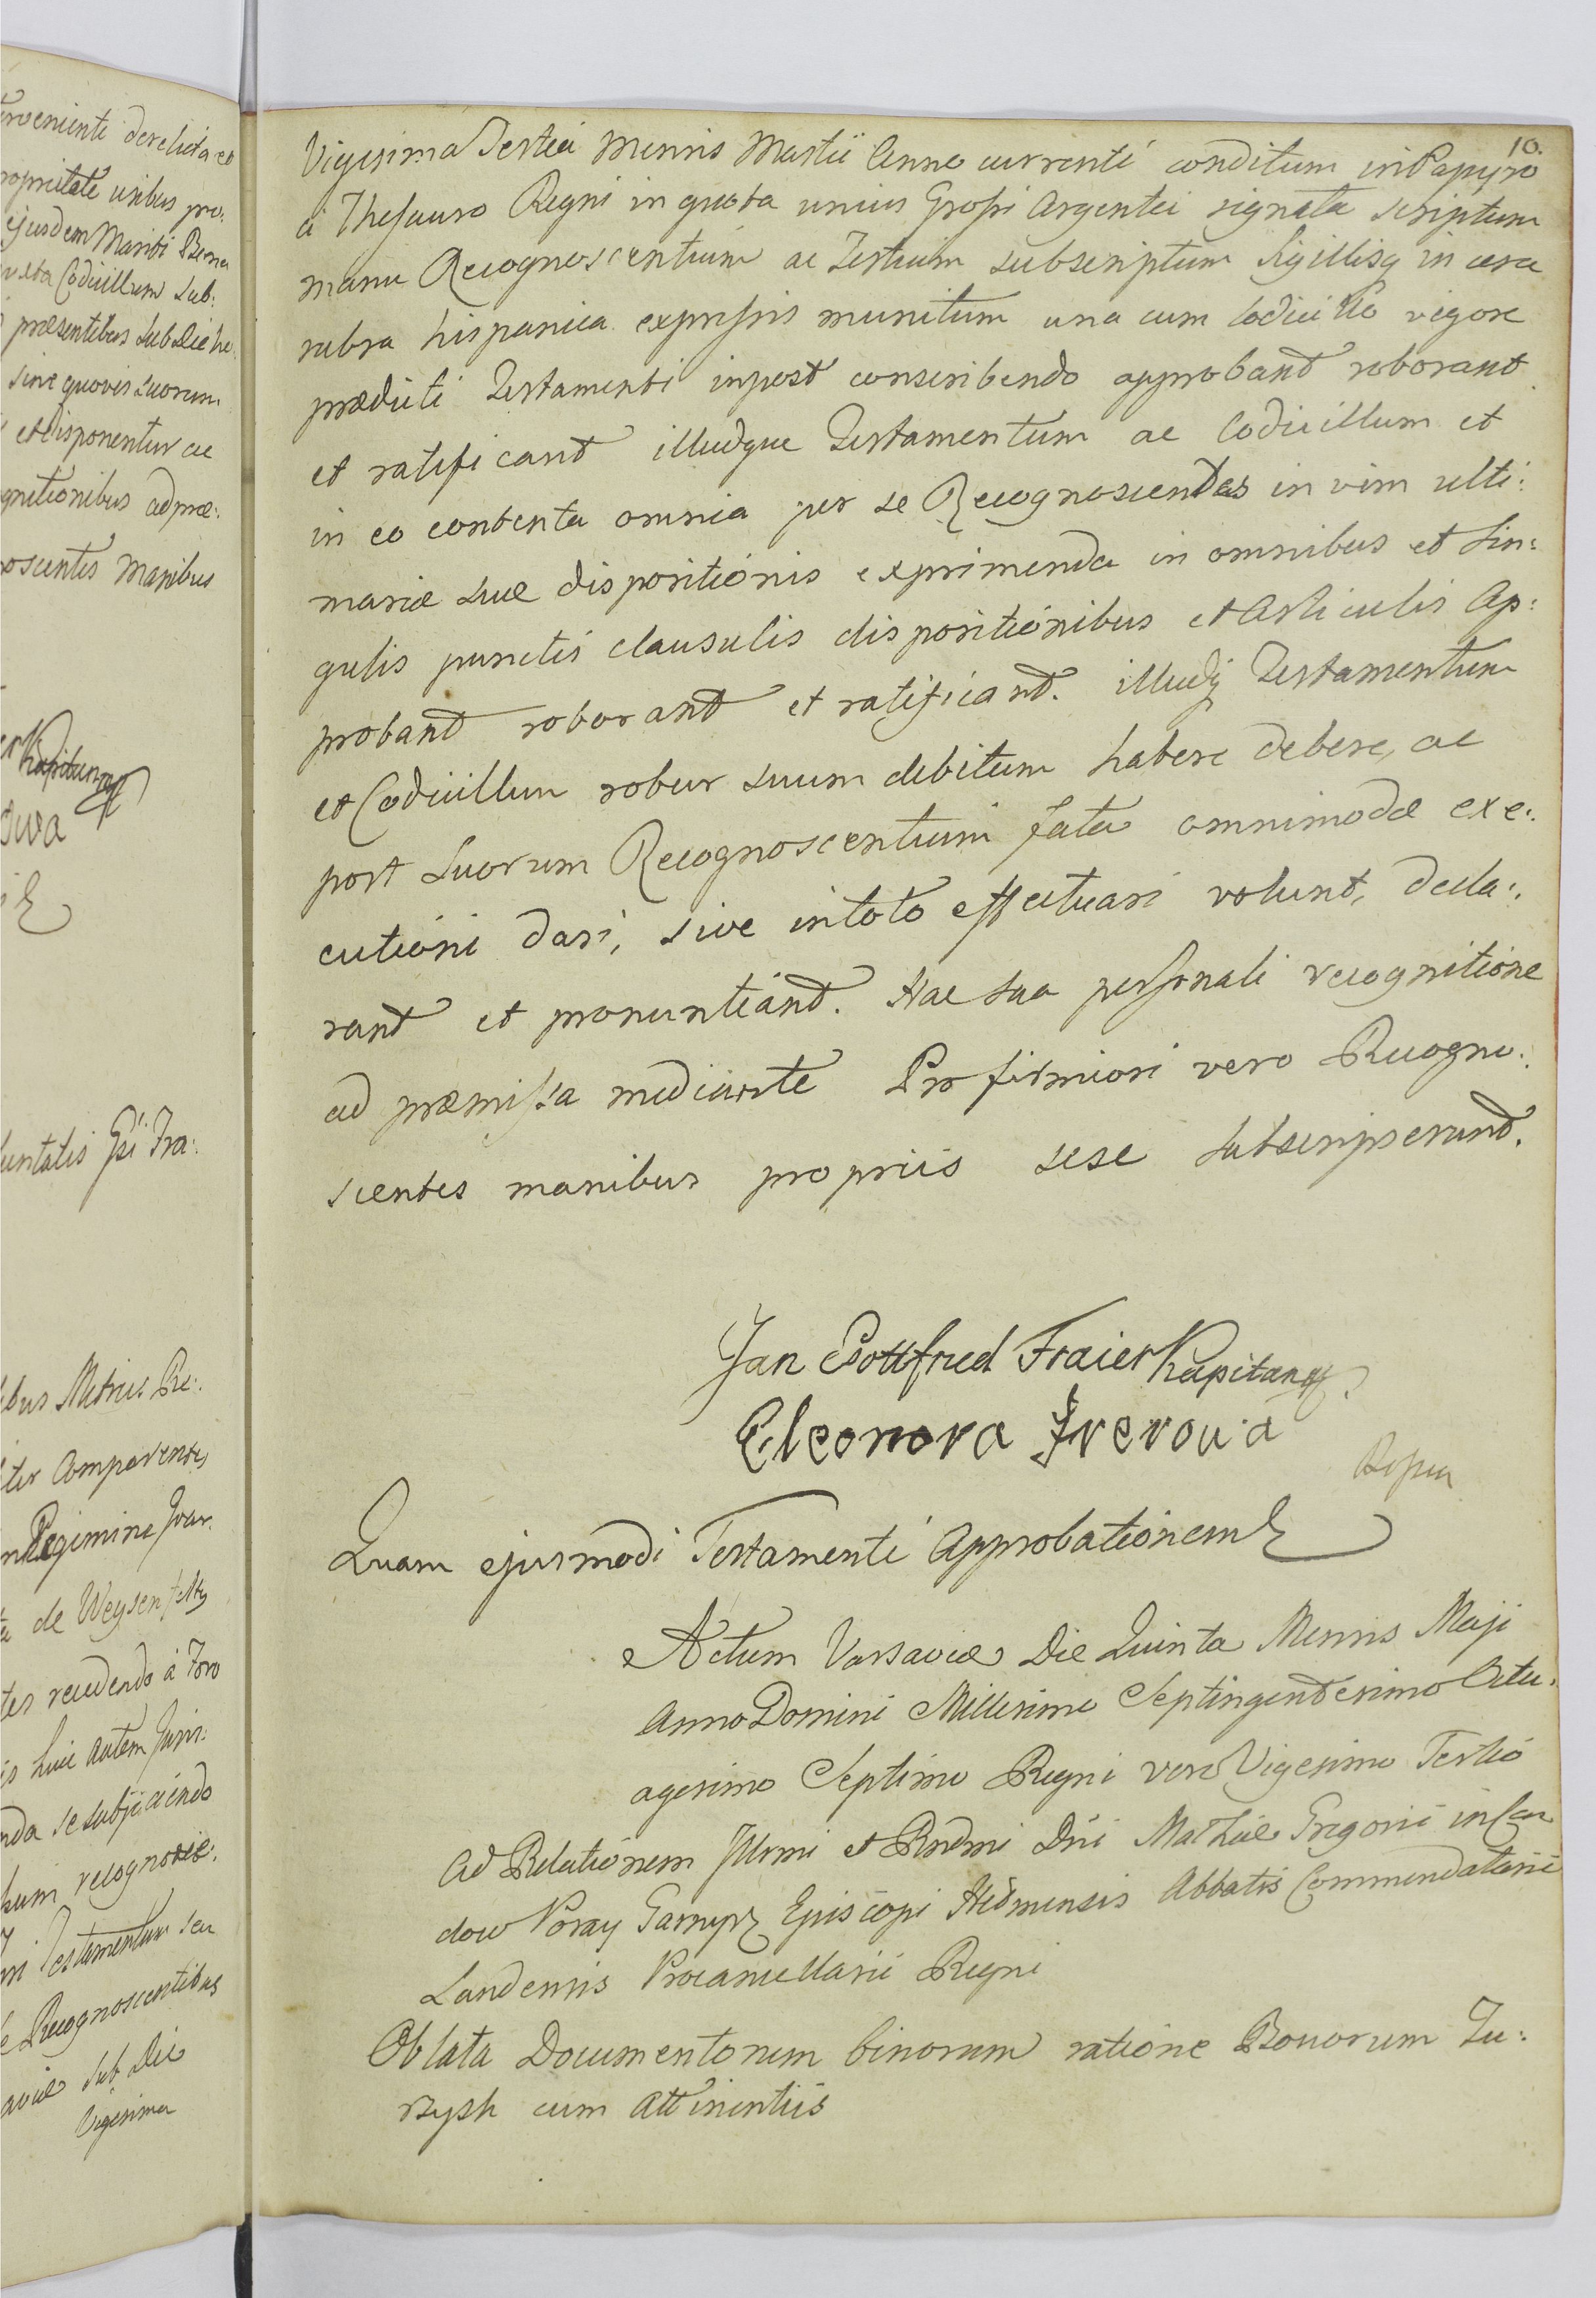 terveniente derelicta et
proprietate usibus pro:
ejusdem Mariti Bona
juxta Codicillum sub:
præsentibus sub Die he
sine quovis suorum
et disponentur ac
gnitionibus ad præ:
noscentes Manibus
Kapitan
luntatis Gsi Fra:
ibus Metrices Re:
ter Comparentes
Regimine Joan:
de Weysenfelts
tes recedendo à Foro
is huic autem Juris:
nda se subjiciendo
recognover:
Testamentum seu
Recognoscentibus
aviæ sub Die
Vigesima
10.
Vigesima Tertia Mensis Martii Anno currenti conditum in Papyro
a Thesauro Regni in quota unius Grossi Argentei signata scriptum
manu Recognoscentium ac Testium subscriptum Sigillisq in cera
rubra hispanica expressis munitum una cum Codicillo vigore
prædicti Testamenti inpost conscribendo approbant roborant
et ratificant illudque Testamentum ac Codicillum et
in eo contenta omnia per se Recognoscentes in vim ulti:
mariæ suæ dispositionis exprimenda in omnibus et sin:
gulis punctis clausulis dispositionibus et Articulis Ap:
probant roborant et ratificant. illudq Testamentum
et Codicillum robur suum debitum habere debere, ac
post suorum Recognoscentium fata omnimodæ exe:
cutioni dari, sive in toto effectuari volunt, decla:
rant et pronuntiant. Hac sua personali recognitione
ad præmissa mediante Pro firmiori vero Recogno:
scentes manibus propriis sese subscripserunt.
Jan Gottfried Fraier Kapitan
Eleonora Frerowa
Quam ejusmodi Testamenti Approbationem
Actum Varsaviæ Die Quinta Mensis Maji
Anno Domini Millesimo Septingentesimo Octu:
agesimo Septimo Regni vero Vigesimo Tertio
Ad Relationem Illrmi et Rndmi Dni Mathiæ Grzegorii in Gar
dow Poray Garnysz Episcopi Helmensis Abbatis Commendatarii
Landensis Procancellarii Regni
Oblata Documentorum binorum ratione Bonorum Tu:
rzysk cum Attinentiis